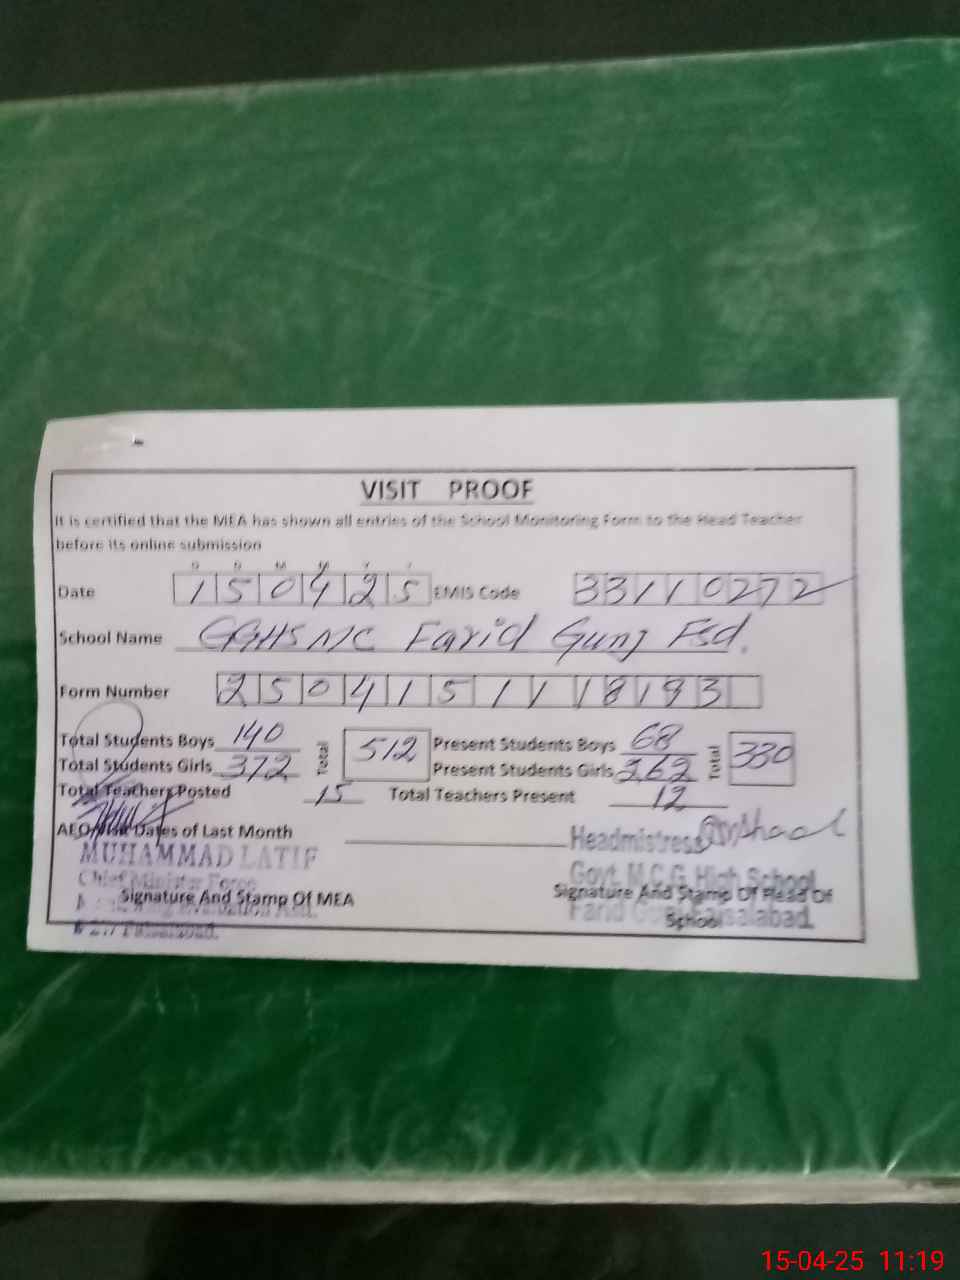 VISIT PROOF
It is certified that the MEA has shown all entries of the School Monitoring Form to the Head Teacher
before its online submission
D D M M Y Y
Date 150425 EMIS Code 33110272
School Name GGHS MC Farid Gunj Fsd.
Form Number 250415111893
Total Students Boys 140 Total 512 Present Students Boys 68 Total 330
Total Students Girls 372 Present Students Girls 262
Total Teachers Posted 15 Total Teachers Present 12
AEO Visit Dates of Last Month
Headmistress
MUHAMMAD LATIF
Govt. M.C.G. High School
Chief Minister Force
Signature And Stamp Of MEA
Signature And Stamp Of Head Of
School
Faisalabad.
15-04-25 11:19